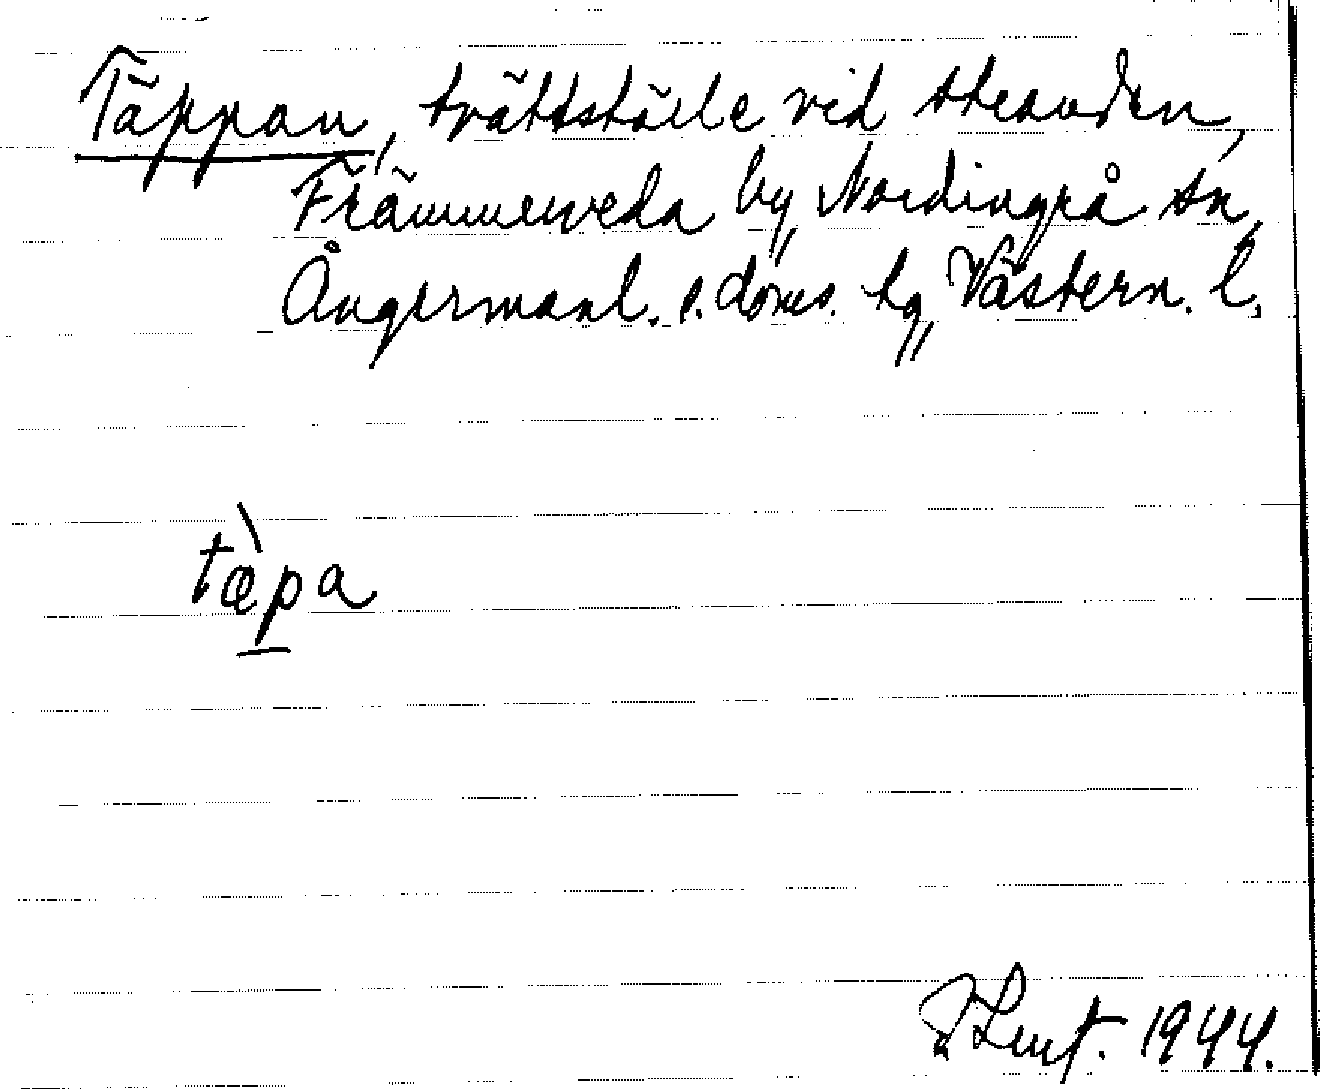 Täppan, tvättställe vid stranden,
Främmerveda by, Nordingrå sn,
Ångermanl. s. doms. tg, Västern. l.
tæ̀pa
1944.